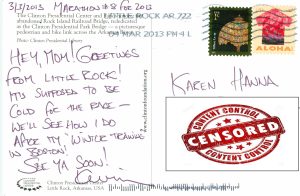 3/2/2013 MARATHON #2 FOR 2013
The Clinton Presidential Center and
abandoned Rock Island Railroad Bridge, rededicated
as the Clinton Presidential Park Bridge — a pedestrian
and bike path across the Arkansas
Photo: Clinton Presidential Library
LITTLE ROCK AR 722
04 MAR 2013 PM 4 L
ALOHA!
HEY, MOM! GREETINGS
FROM LITTLE ROCK!
IT'S SUPPOSED TO BE
COLD FOR THE RACE —
WE'LL SEE HOW I DO
AFTER MY "WINTER" TRAINING
IN BOSTON!
SEE YA SOON!
Kevin
www.clintonfoundation.org
KAREN HANNA
CONTENT CONTROL
CENSORED
CONTENT CONTROL
Clinton Presidential
Little Rock, Arkansas, USA